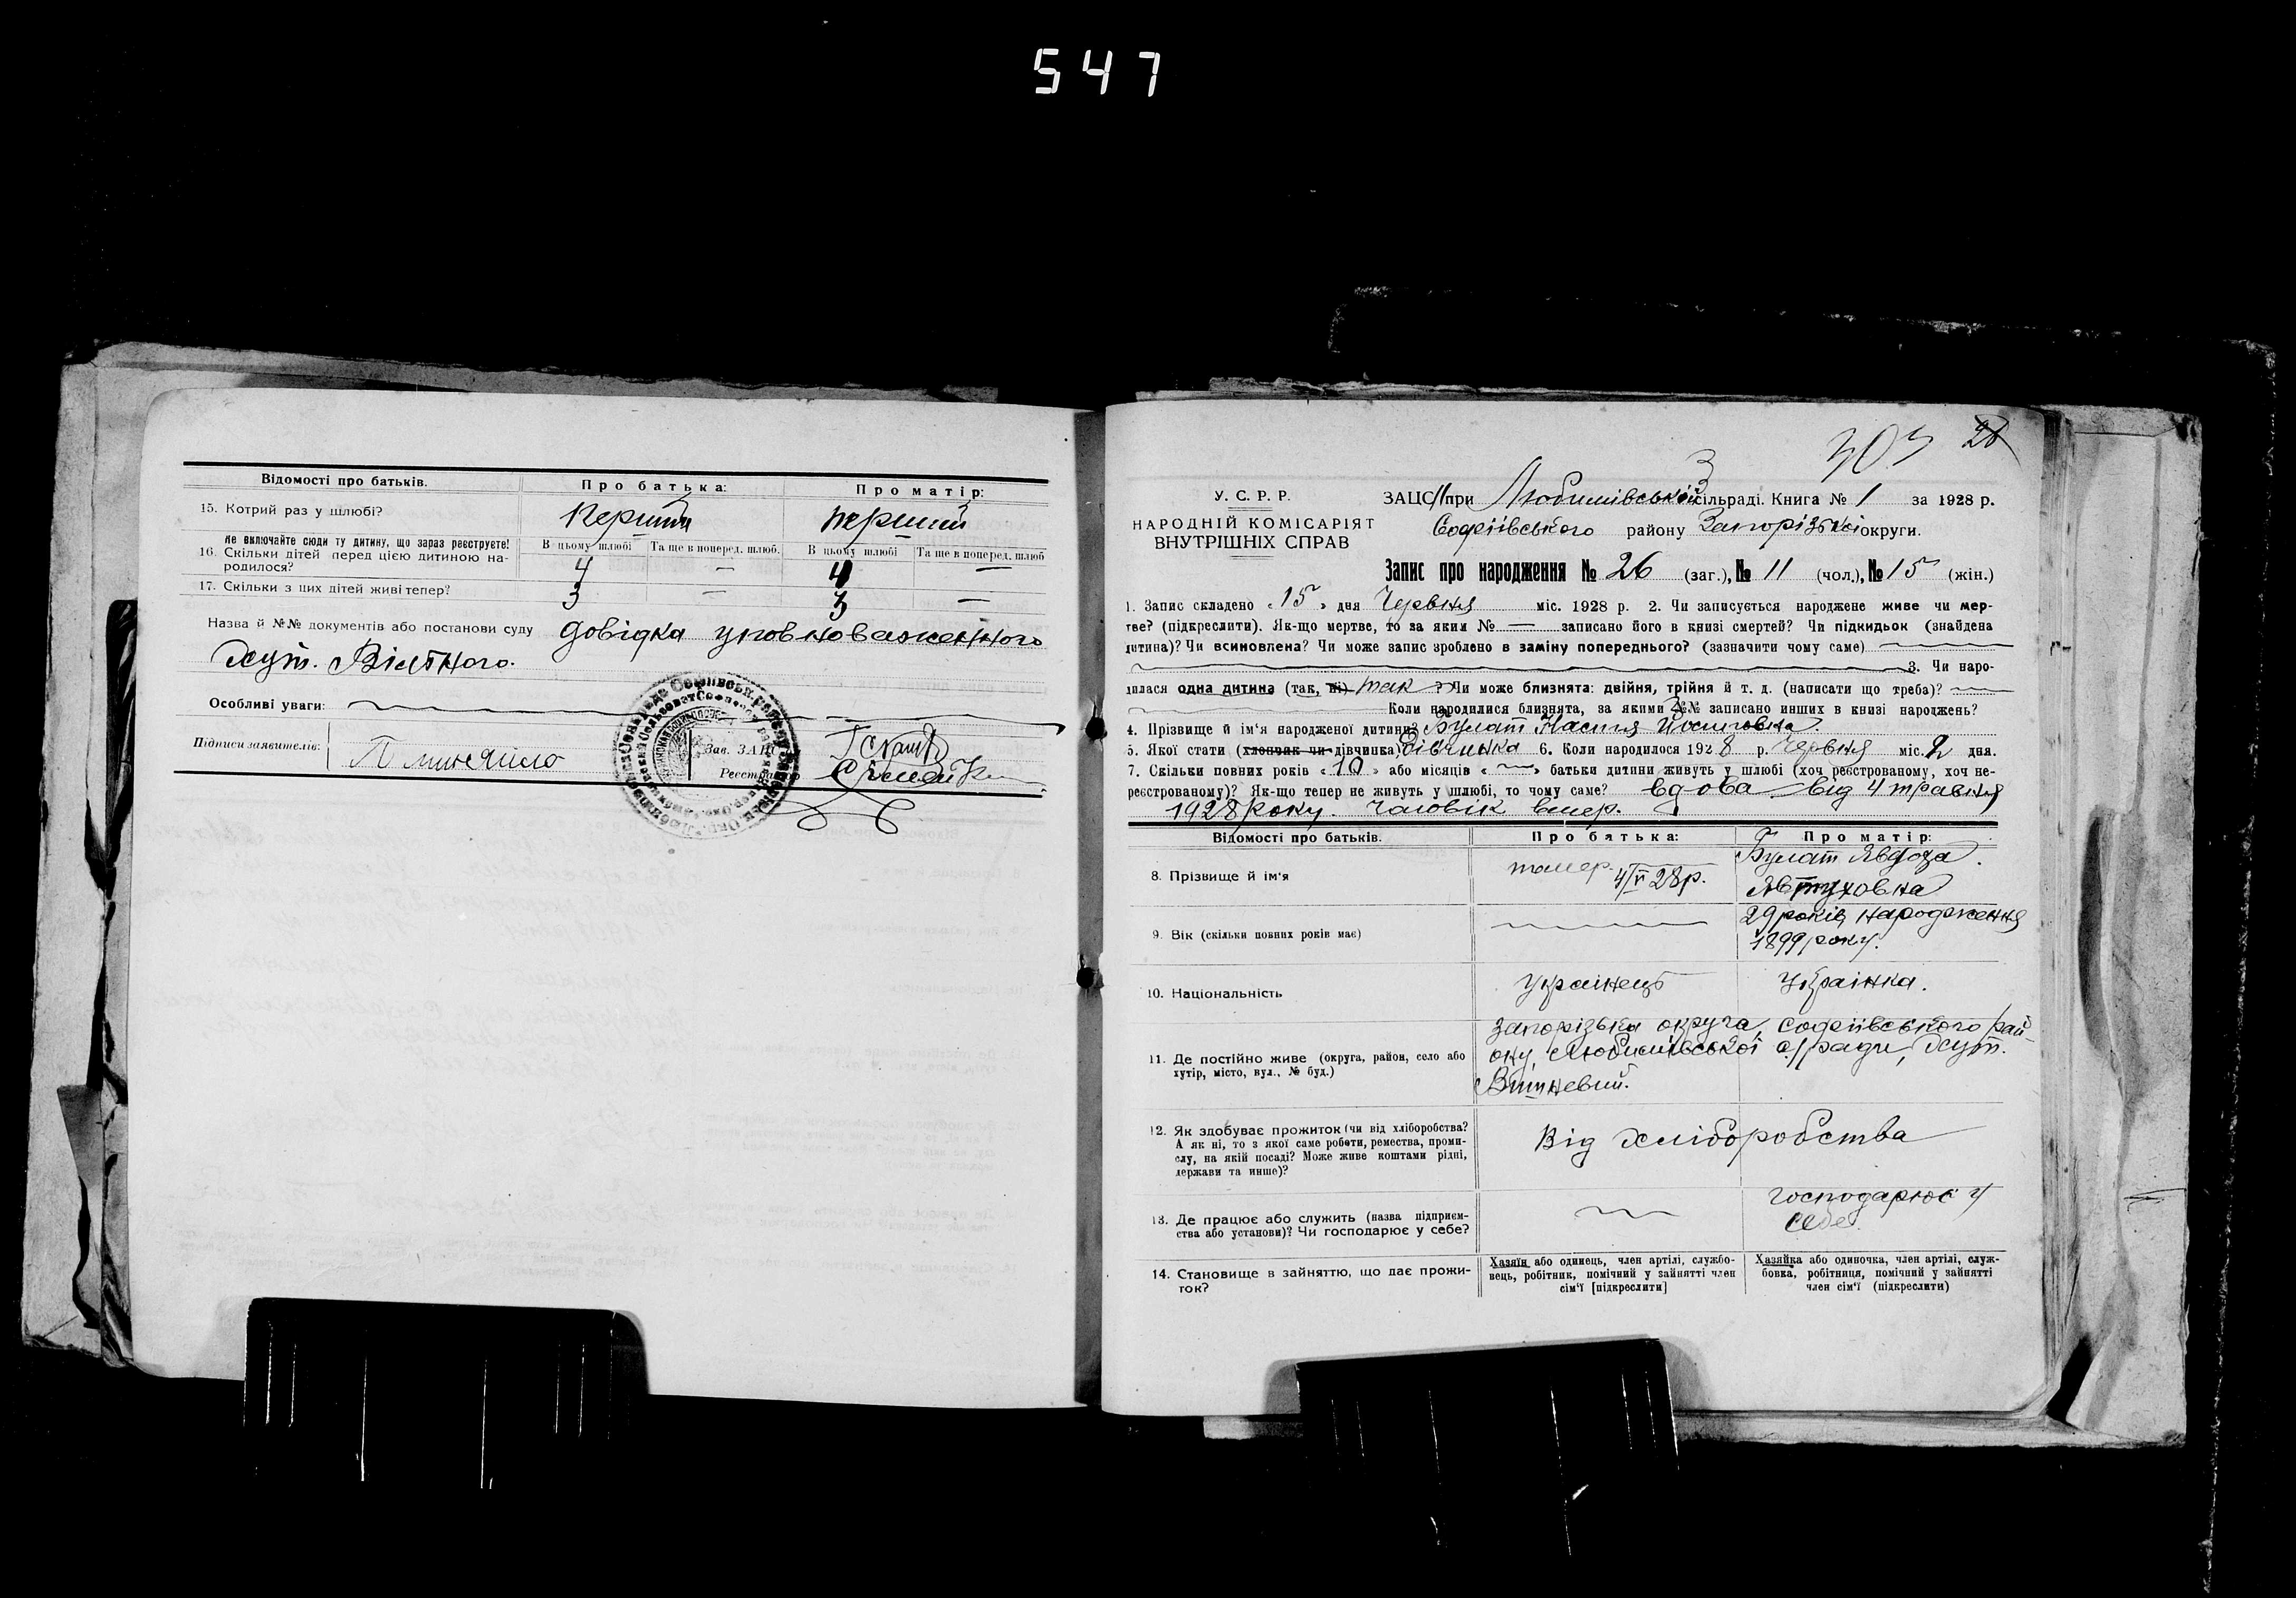 547
Відомості про батьків. Про батька: Про матір:
15. Котрий раз у шлюбі? перший перший
Не включайте сюди ту дитину, що зараз реєструєте! В цьому шлюбі Та ще в поперед. шлюб. В цьому шлюбі Та ще в поперед. шлюб
16. Скільки дітей перед цією дитиною на-
родилося? 4 — 4 —
17. Скільки з цих дітей живі тепер? 3 — 3 —
Назва й №№ документів або постанови суду довідка уповноваженного
хут. Вільного.
Особливі уваги:
Підписи заявителів:
Зав. ЗАЦС
Реєстратор
303 28
У. С. Р. Р.
НАРОДНІЙ КОМІСАРІЯТ
ВНУТРІШНІХ СПРАВ
ЗАЦС при Любимівській сільраді. Книга № 1 за 1928 р.
Софіївського району Запорізької округи.
Запис про народження № 26 (заг.), № 11 (чол.), № 15 (жін.)
1. Запис складено „15" дня Червня міс. 1928 р. 2. Чи записується народжене живе чи мер-
тве? (підкреслити). Як-що мертве, то за яким № — записано його в книзі смертей? Чи підкидьок (знайдена
дитина)? Чи всиновлена? Чи може запис зроблено в заміну попереднього? (зазначити чому саме)
3. Чи наро-
дилася одна дитина (так, ні) так ? Чи може близнята: двійня, трійня й т. д. (написати що треба)? —
Коли народилися близнята, за якими №№ записано инших в книзі народжень?
4. Прізвище й ім'я народженої дитини? Булат Настя Йосиповна.
5. Якої стати (хлопчик чи дівчинка) дівчинка 6. Коли народилося 1928 р. Червня міс. 2 дня.
7. Скільки повних років „10" або місяців „—" батьки дитини живуть у шлюбі (хоч реєстрованому, хоч не-
реєстрованому)? Як-що тепер не живуть у шлюбі, то чому саме? вдова від 4 травня
1928 року. Чоловік вмер.
Відомості про батьків. Про батька: Про матір:
8. Прізвище й ім'я 28р. Булат Явдоха
Явтуховна
9. Вік (скільки повних років має) — 29 років, народження
1899 року.
10. Національність українець Українка.
11. Де постійно живе (округа, район, село або
хутір, місто, вул., № буд.)
Запорізька округа, Софіївського рай-
ону Любимівської с/ради, хут.
Вишневий.
12. Як здобуває прожиток (чи від хліборобства?
А як ні, то з якої саме роботи, ремества, проми-
слу, на якій посаді? Може живе коштами рідні,
держави та инше)?
Від хліборобства
13. Де працює або служить (назва підприєм-
ства або установи)? Чи господарює у себе?
— господарює у
себе.
14. Становище в зайняттю, що дає прожи-
ток?
Хазяїн або одинець, член артілі, службо-
вець, робітник, помічний у зайнятті член
сім'ї [підкреслити]
Хазяйка або одиночка, член артілі, служ-
бовка, робітниця, помічний у зайнятті
член сім'ї (підкреслити)